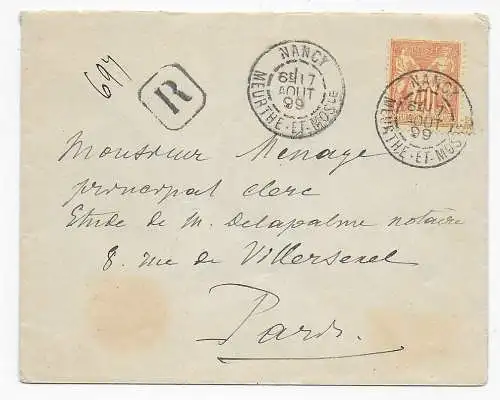 694
R
NANCY
6E 17
AOUT
99
MEURTHE-ET-MOSLLE
NANCY
6E 17
AOUT
99
MEURTHE-ET-MOS
Monsieur Menage
principal clerc
Etude de M. Delapalme notaire
8 rue de Villersexel
Paris